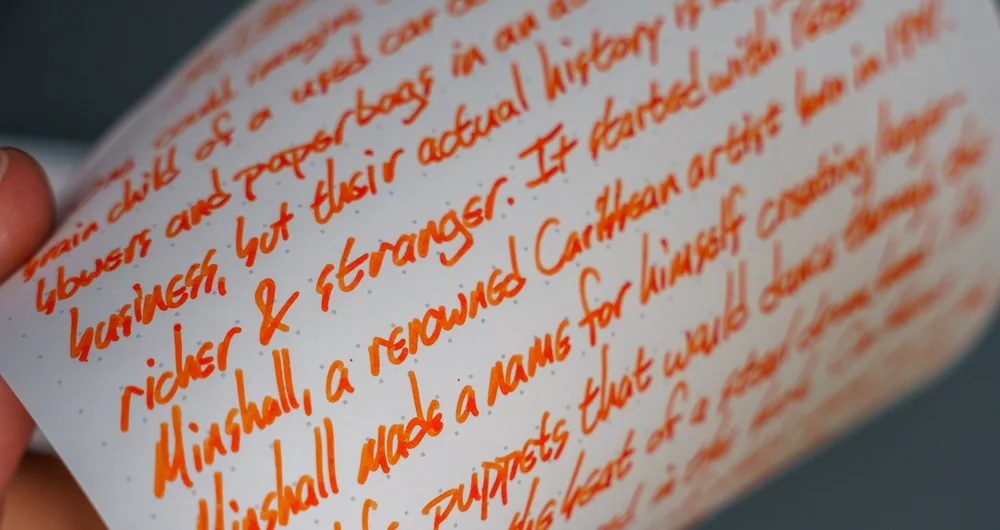 could imagine
brain child of a used car
blowers and paperbags in an
business, but their actual history is
richer & stranger. It started with Peter
Minshall, a renowned Caribbean artist born in 1941.
Minshall made a name for himself creating larger
puppets that would dance through the
the beat of a steel drum band
in the